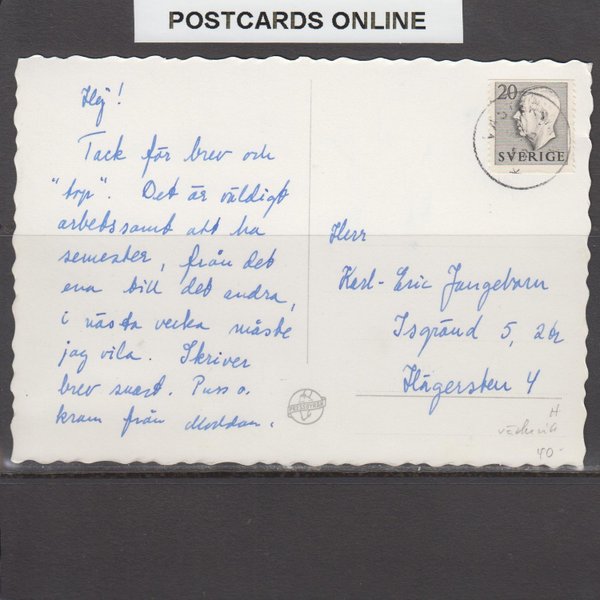 POSTCARDS ONLINE
Hej!
Tack för brev och
"typ". Det är väldigt
arbetssamt att ha
semester, från det
ena till det andra,
i nästa vecka måste
jag vila. Skriver
brev snart. Puss o.
kram från Moddan.
20
SVERIGE
Herr
Karl-Eric Jangeborn
Isgränd 5, 2tr
Hägersten 4
H
40-